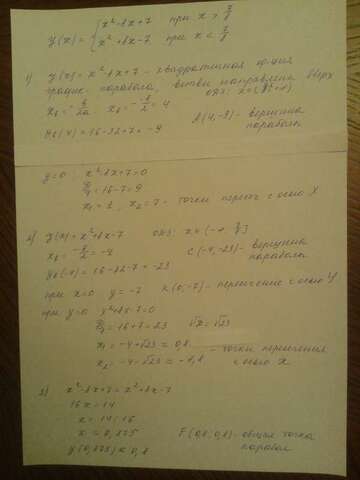 y(x) = { x² - 8x + 7 при x > 7/8
x² + 8x - 7 при x < 7/8
1) y(x) = x² - 8x + 7 - квадратичная ф-ция
график - парабола, ветви направлены вверх
x₀ = -b/2a x₀ = -8/2 = 4
y₀(4) = 16 - 32 + 7 = -9 A(4; -9) - вершина
параболы
y=0 x² - 8x + 7 = 0
= 16 - 7 = 9
x₁ = 1, x₂ = 7 - точки пересеч с осью X
2) y(x) = x² + 8x - 7
x₀ = -8/2 = -4 C(-4; -23) - вершина
y₀(-4) = 16 - 32 - 7 = -23 параболы
при x=0 y = -7 K(0; -7) - пересечение с осью У
при y=0 x² + 8x - 7 = 0
= 16 + 7 = 23 √23
x₁ = -4 + √23 ≈ 0,8
x₂ = -4 - √23 ≈ -8,8 - точки пересечения
с осью X
3) x² - 8x + 7 = x² + 8x - 7
16x = 14
x = 14/16
x = 0,875
y(0,875) ≈ 0,8 F(0,8; 0,8) - общая точка
парабол